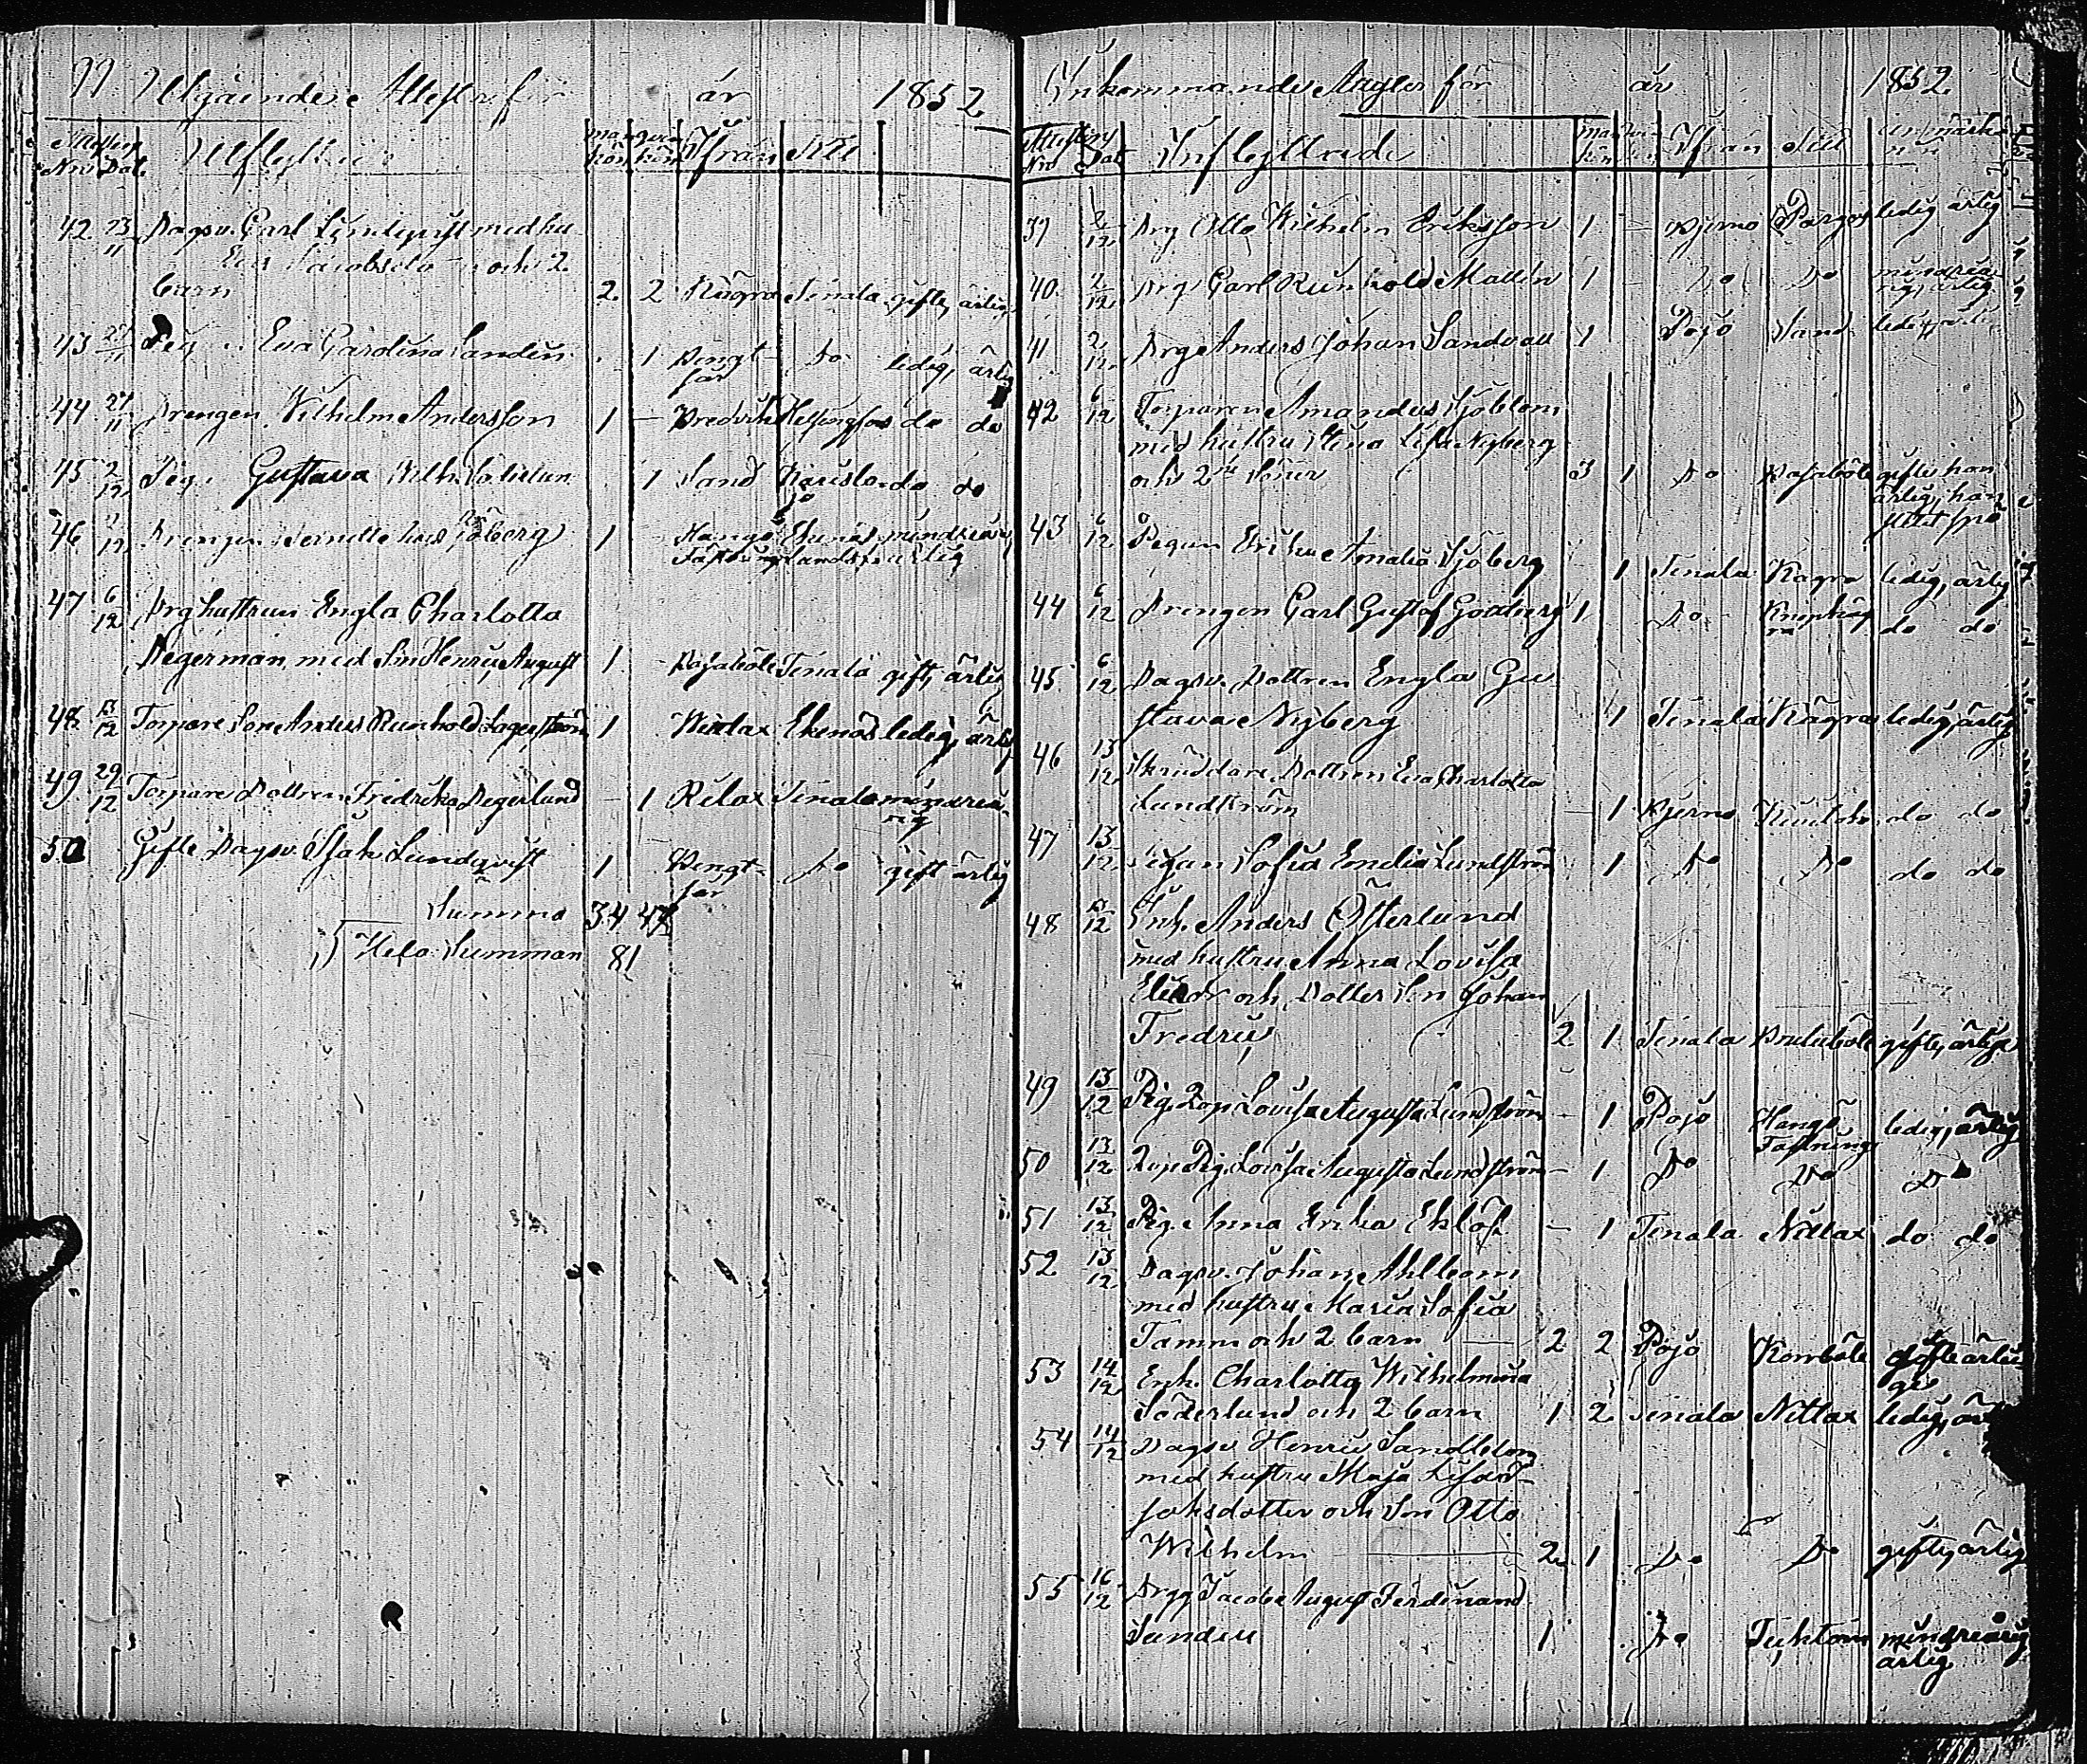 99 Utgående Attester för år 1852
Attestens
Nro Dat. Utflyttade mankön qvinkön Ifrån Till
42 23/11 Dagsv. Carl Lindqvist med hu-
Eva Jacobsdo och 2
barn 2 2 Kägra Tenala gifte, ärlig
43 27/11 Pig. Eva Carolina Sandin 1 Bengt- Do ledig, ärlig
sår
44 27/11 Drengen Wilhelm Andersson 1 — Bredvik Helsingfors do do
45 2/12 Pig. Gustava Wilh. 1 Sand Karislo- do do
jo
46 12 Drengen Sjöberg 1 Hangö Ekenäs mindreårig
Fästning Landsf. ärlig
47 6/12 Drg hustrun Engla Charlotta
Degerman med Son Henric August 1 - Basaböle Tenala gift, ärlig
48 13/12 Torpare Son Anders Reinhold Lagerström 1 Ekenäs ledig, ärlig
49 29/12 Torpare Dottren Fredrika Degerlund — 1 Rilax Tenala mindreå-
rig
50 Gifte Dagsv. Isak Lundqvist 1 Bengt- Do gift ärlig
sår
Summa 34 47
Hela Summan 81
Inkommande Attester för år 1852
Attest
Nro Dat Inflyttade Mankön Ifrån Till
39 2/12 Drg Otto Wilhelm Eriksson 1 — Bjerno Parge ledig ärlig
40 2/12 Drg Carl Reinhold Mallén 1 — Do Do mindreå-
rig, ärlig
41 2/12 Drg Anders Johan Sandvall 1 Pojo Sand ledig, ärlig
42 6/12 Torparen Amandus Sjöblom
med hustru Stina Lisa Nyberg
och 2ne Söner 3 1 Do Basaböle gifte han
ärlig, hon
43 6/12 Pigan Erika Amalia Sjöberg 1 Tenala Kägra ledig, ärlig
44 6/12 Drengen Carl Gustaf Grönberg 1 Do do do
45 6/12 Dagsv. Dottren Engla Gu-
stava Nyberg 1 Tenala Kägra ledig, ärlig
46 13/12 Skräddare Dottren Eva Charlotta
Lundström — 1 Bjerno do do
47 13/12 Pigan Sofia Emelia Lundström 1 Do Do do do
48 13/12 Inh. Anders Österlund
med hustru Anna Lovisa
och Dotter Son Johan
Fredric 2 1 Tenala gifte, ärlige
49 13/12 Pig. Lovisa Augusta Lundström — 1 Pojo Hangö ledig, ärlig
Fästning
50 13/12 Pig. Lovisa Augusta Lundström — 1 Do Do Do
51 13/12 Pig. Anna Erika Eklöf — 1 Tenala Nittax do do
52 13/12 Dagsv. Johan Ahlbom
med hustru Maria Sofia
Tamm och 2 barn — 2 2 Pojo gifte ärli-
ge
53 14/12 Enk. Charlotta Wilhelmina
Söderlund och 2 barn 1 2 Tenala Nittax ledig,
54 14/12 Dagsv. Henric Sandblom
med hustru Maja Lisa
jaksdotter och Son Otto
Wilhelm — 2 1 Do Do gifte, ärlig
55 16/12 Drg Jacob August Ferdinand
Sandell 1 Do Täcktom mindreårig
ärlig